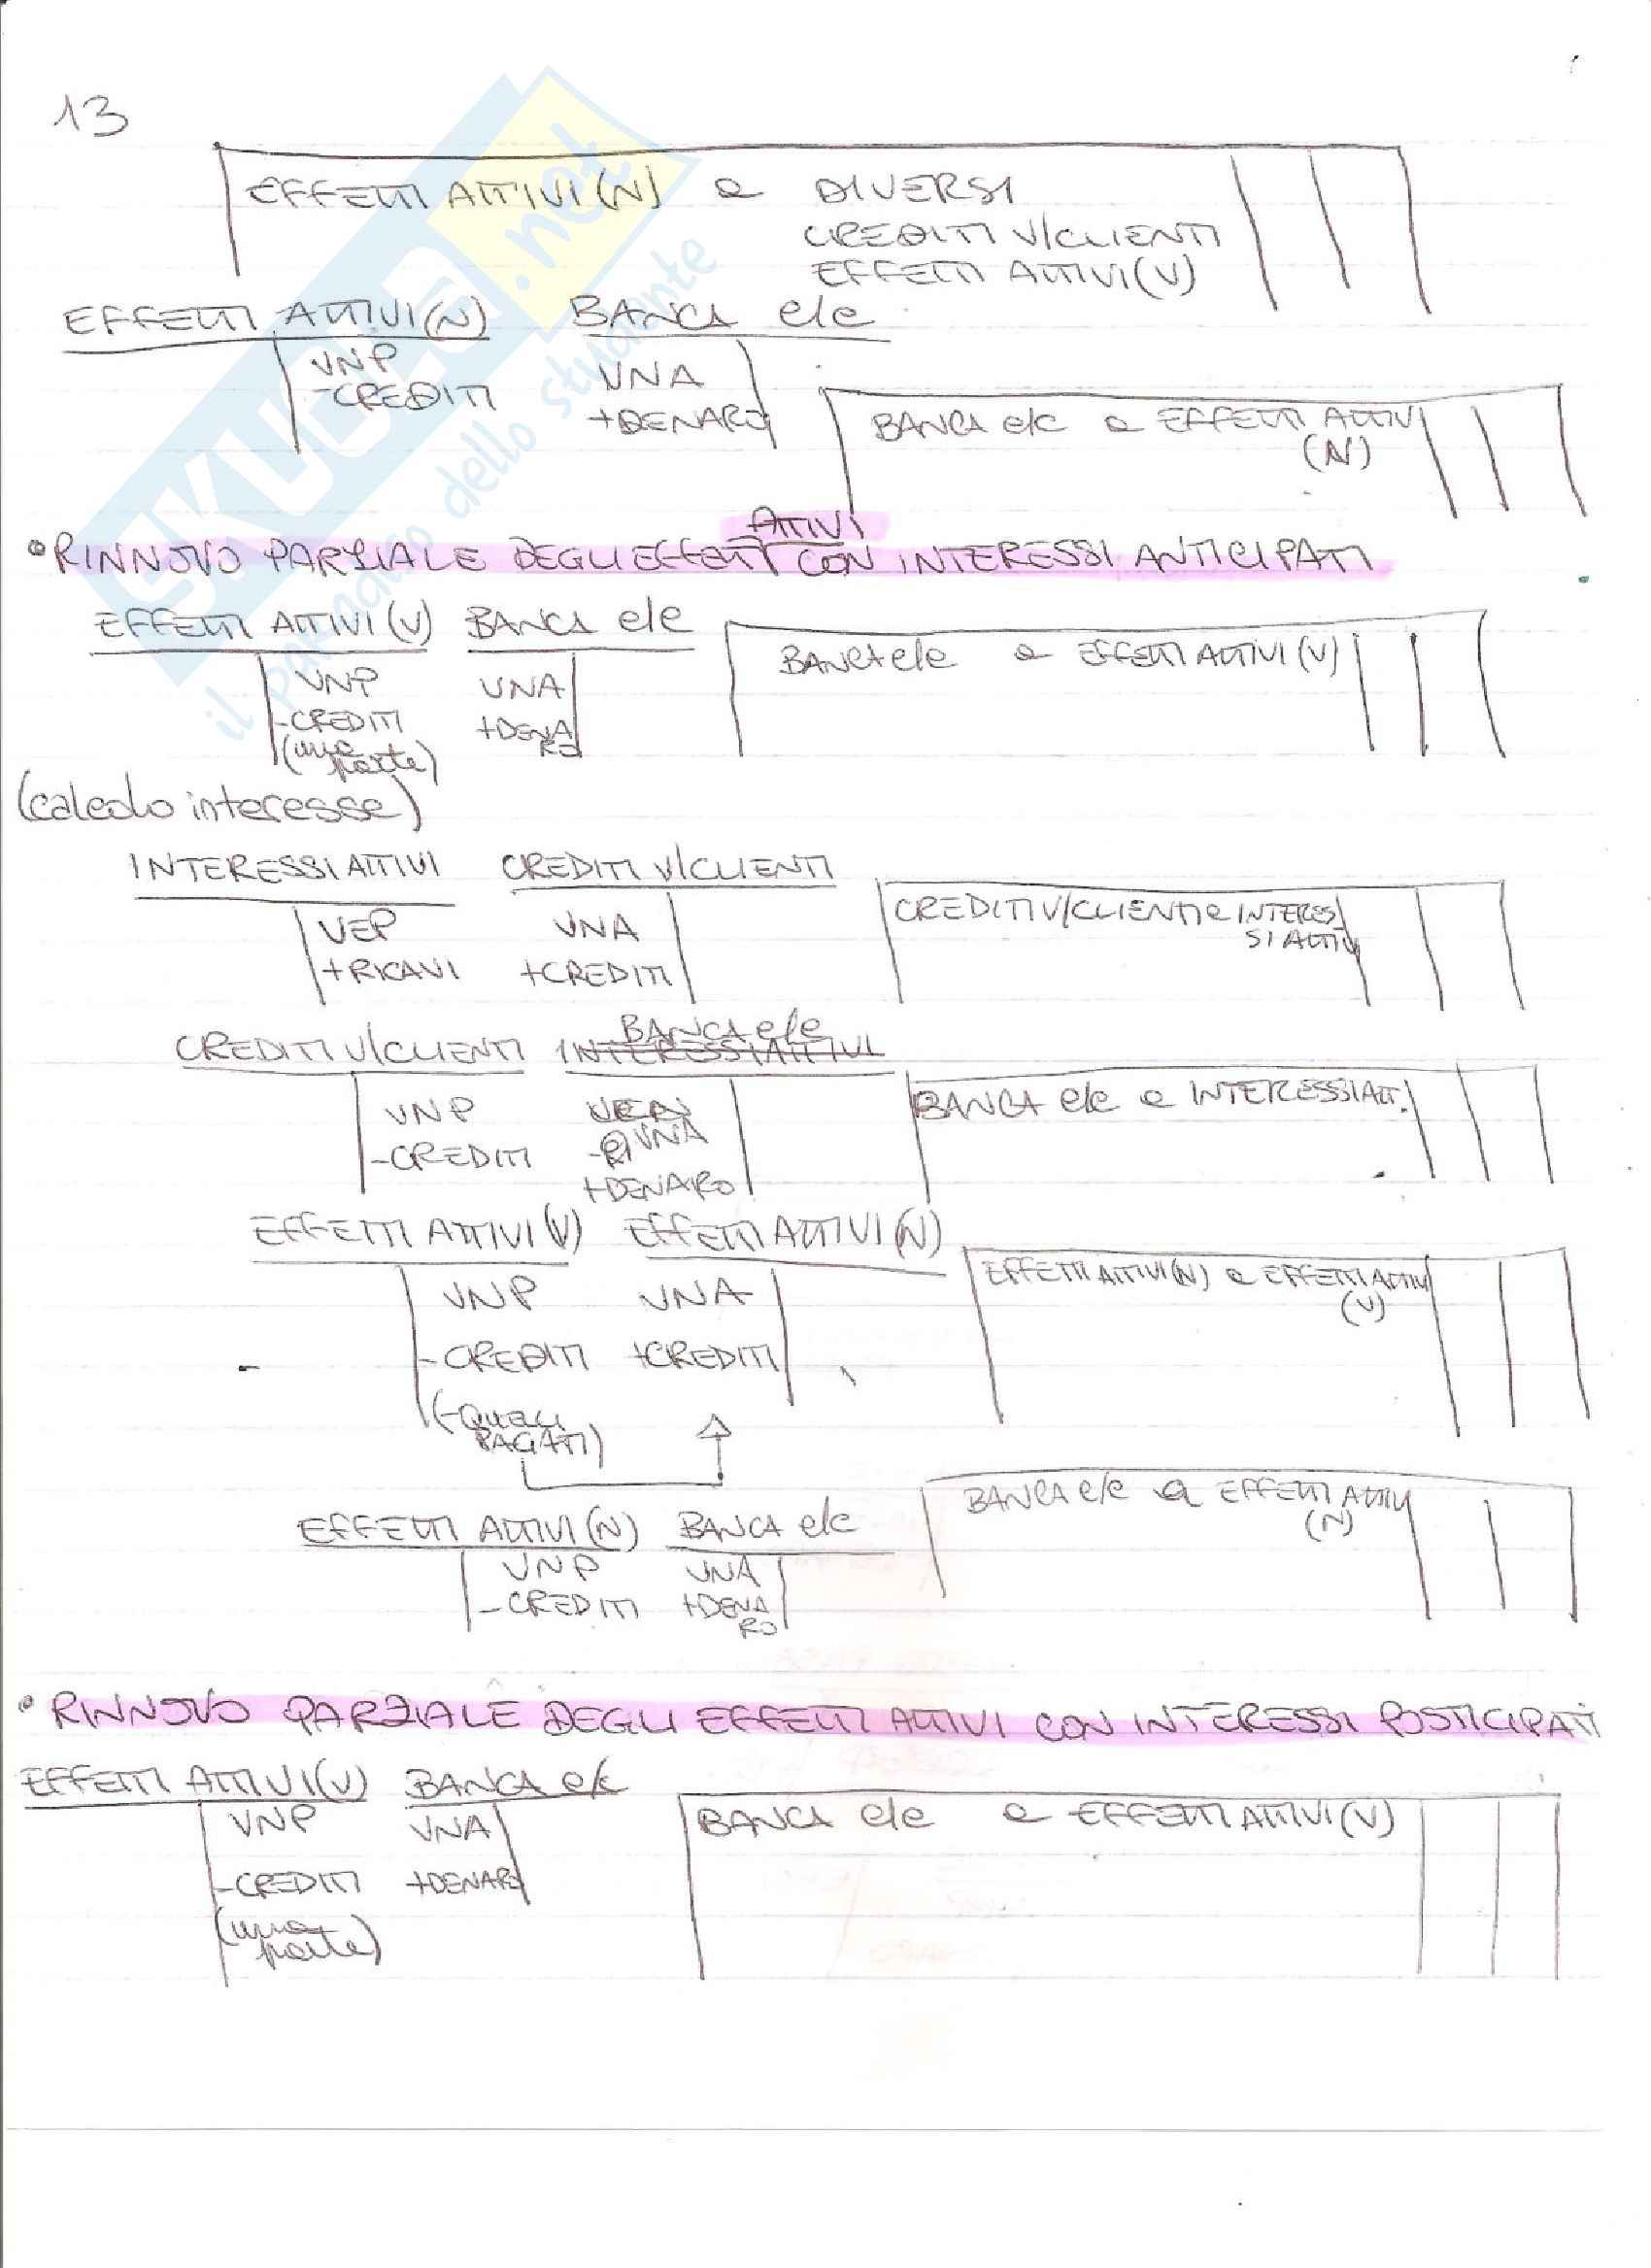 13
EFFETTI ATTIVI (N) a DIVERSI
CREDITI V/CLIENTI
EFFETTI ATTIVI (V)
EFFETTI ATTIVI (N) BANCA c/c
VNP VNA
-CREDITI +DENARO
BANCA c/c a EFFETTI ATTIVI
(N)
• RINNOVO PARZIALE DEGLI EFFETTI ATTIVI CON INTERESSI ANTICIPATI
EFFETTI ATTIVI (V) BANCA c/c
VNP VNA
-CREDITI +DENA
(una RO
parte)
BANCA c/c a EFFETTI ATTIVI (V)
(calcolo interesse)
INTERESSI ATTIVI CREDITI V/CLIENTI
VEP VNA
+RICAVI +CREDITI
CREDITI V/CLIENTI a INTERES
SI ATTIVI
CREDITI V/CLIENTI INTERESSI ATTIVI BANCA c/c
VNP VNA
-CREDITI +DENARO
BANCA c/c a INTERESSI ATT.
EFFETTI ATTIVI (V) EFFETTI ATTIVI (N)
VNP VNA
-CREDITI +CREDITI
(-QUELLI
PAGATI)
EFFETTI ATTIVI (N) a EFFETTI ATTIVI
(V)
EFFETTI ATTIVI (N) BANCA c/c
VNP VNA
-CREDITI +DENA
RO
BANCA c/c a EFFETTI ATTIVI
(N)
• RINNOVO PARZIALE DEGLI EFFETTI ATTIVI CON INTERESSI POSTICIPATI
EFFETTI ATTIVI (V) BANCA c/c
VNP VNA
-CREDITI +DENARO
(una
parte)
BANCA c/c a EFFETTI ATTIVI (V)
SKUOLA.net
il paradiso dello studente